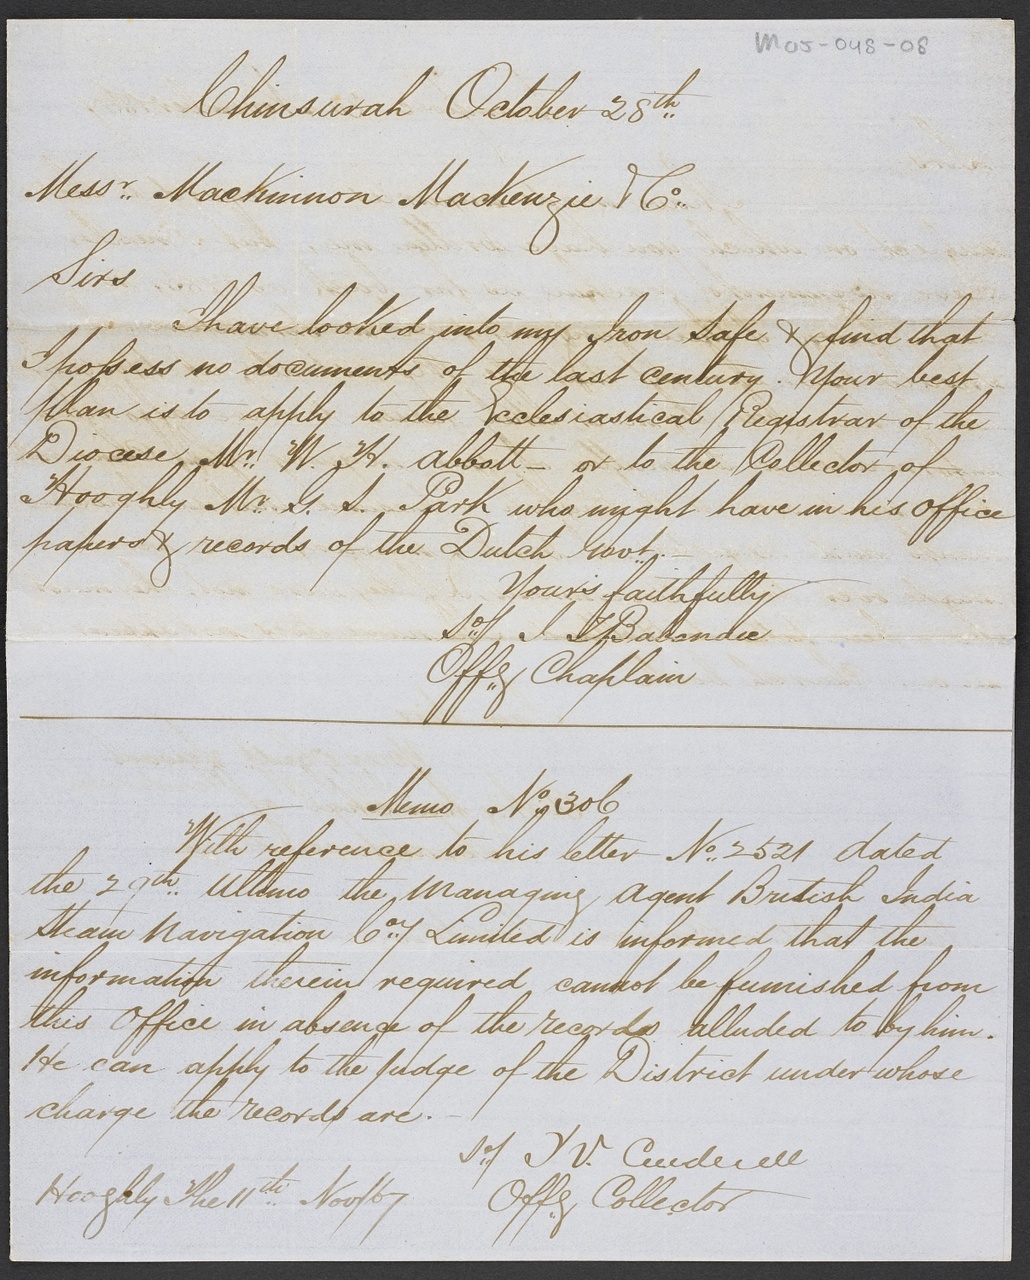 M05-048-08
Chinsurah October 28th
Messr. Mackinnon Mackenzie & Co.
Sirs
I have looked into my Iron Safe & find that
I possess no documents of the last century. Your best
plan is to apply to the Ecclesiastical Registrar of the
Diocese Mr. W. H. Abbott - or to the Collector of
Hooghly Mr. G. S. Park who might have in his Office
papers & records of the Dutch Govt. -
Yours faithfully
Sd/ J
Offg Chaplain
Memo No. 306
With reference to his letter No. 2521 dated
the 29th. Ultimo the Managing Agent British India
Steam Navigation Coy Limited is informed that the
information therein required cannot be furnished from
this Office in absence of the records alluded to by him.
He can apply to the Judge of the District under whose
charge the records are. -
Sd/ V.
Hooghly The 11th Nov/67
Offg Collector